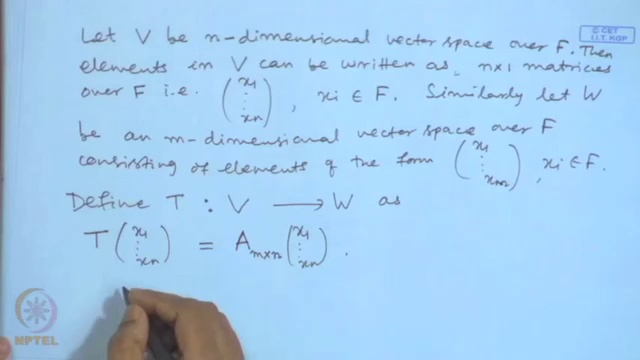 © CET
I.I.T. KGP
Let V be n-dimensional vector space over F. Then
elements in V can be written as, n×1 matrices
over F i.e. (x1 ⋮ xn) , xi ∈ F. Similarly let W
be an m-dimensional vector space over F
consisting of elements of the form (x1 ⋮ xm) , xi ∈ F.
Define T : V ⟶ W as
T (x1 ⋮ xn) = Am×n (x1 ⋮ xn) .
NPTEL